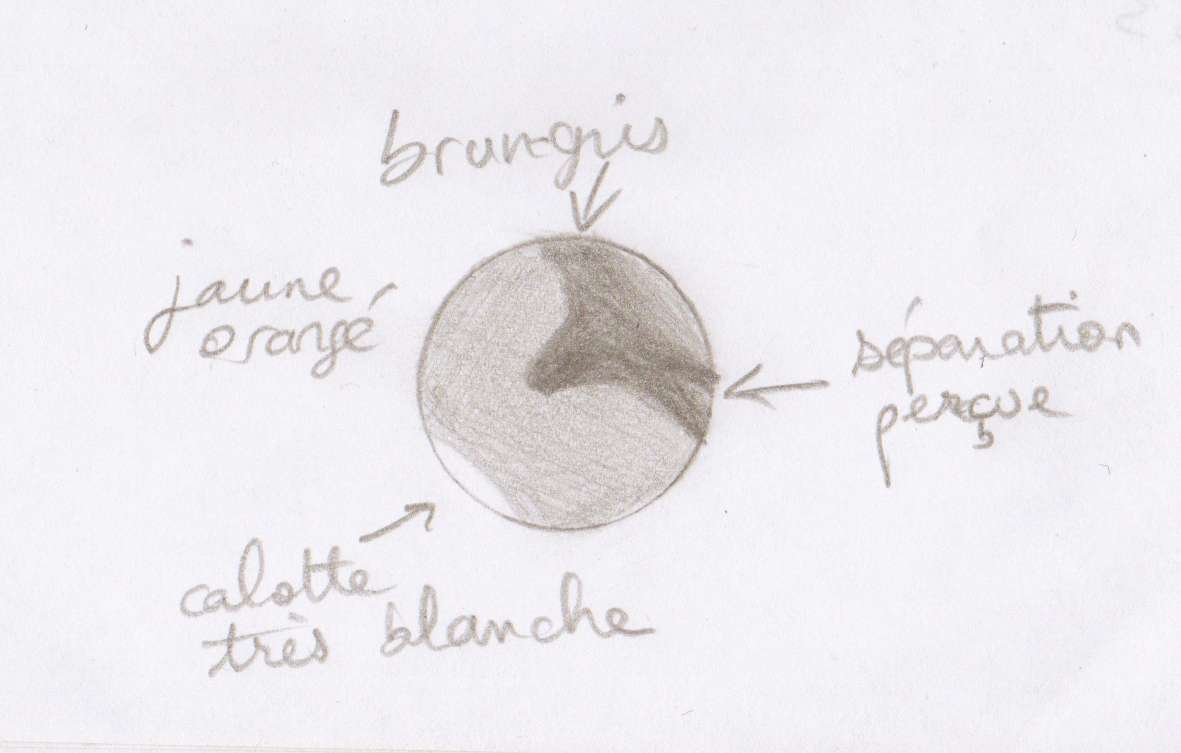 brun-gris
jaune
orangé
séparation
perçue
calotte
très blanche